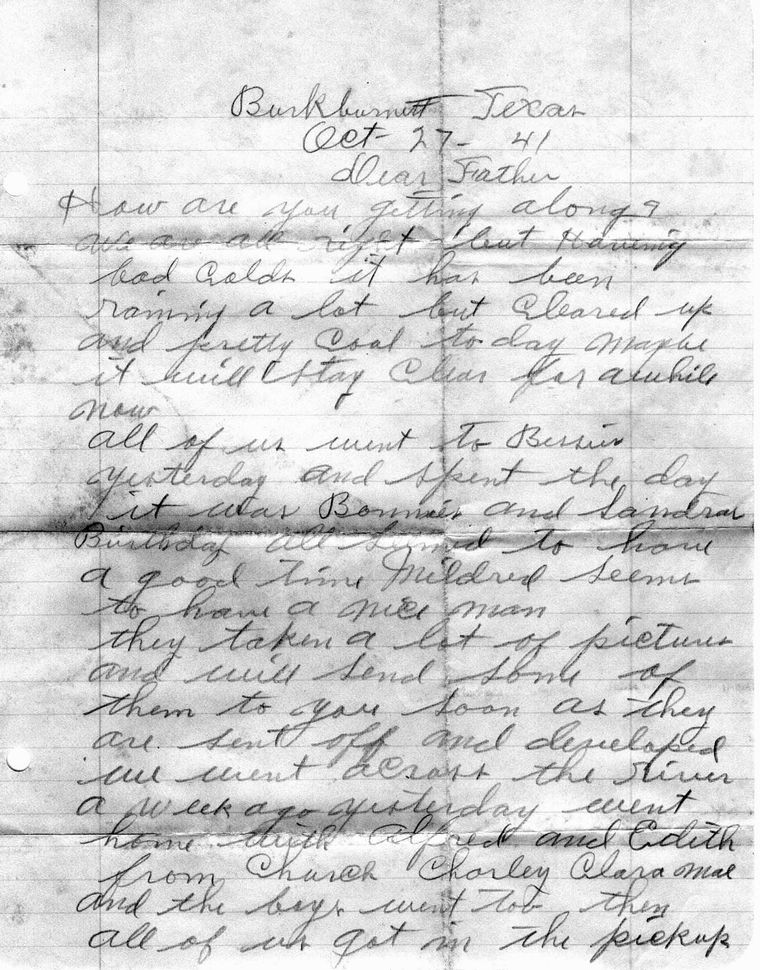 Burkburnett Texas
Oct - 27 - 41
Dear Father
How are you getting along?
We are all right but Having
bad Colds it has been
raining a lot but Cleared up
and pretty Cool to day Maybe
it will stay Clear for awhile
now
all of us went to Bessies
yesterday and spent the day
it was Bonnies and Sandras
Birthday all seemed to have
a good time Mildred seems
to have a nice man
they taken a lot of pictures
and will send some of
them to you soon as they
are sent off and developed
we went across the river
a week ago yesterday went
home with Alfred and Edith
from Church Charley Clara Mae
and the boys went too then
all of us got in the pickup